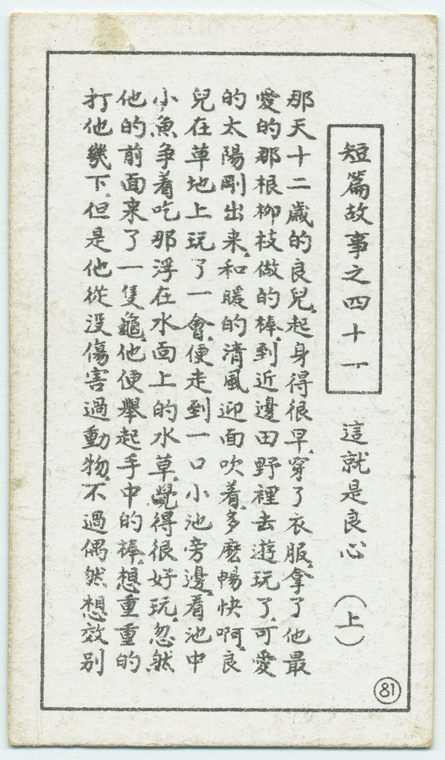 短篇故事之四十一
這就是良心 (上)
那天十二歲的良兒.起身得很早.穿了衣服.拿了他最
愛的那根柳枝做的棒.到近邊田野裡去遊玩了.可愛
的太陽剛出來.和暖的清風迎面吹着.多麽暢快啊.良
兒在草地上玩了一會.便走到一口小池旁邊.看池中
小魚争着吃那浮在水面上的水草.覺得很好玩.忽然
他的前面來了一隻龜.他便舉起手中的棒.想重重的
打他幾下.但是他從没傷害過動物.不過偶然想效别
81